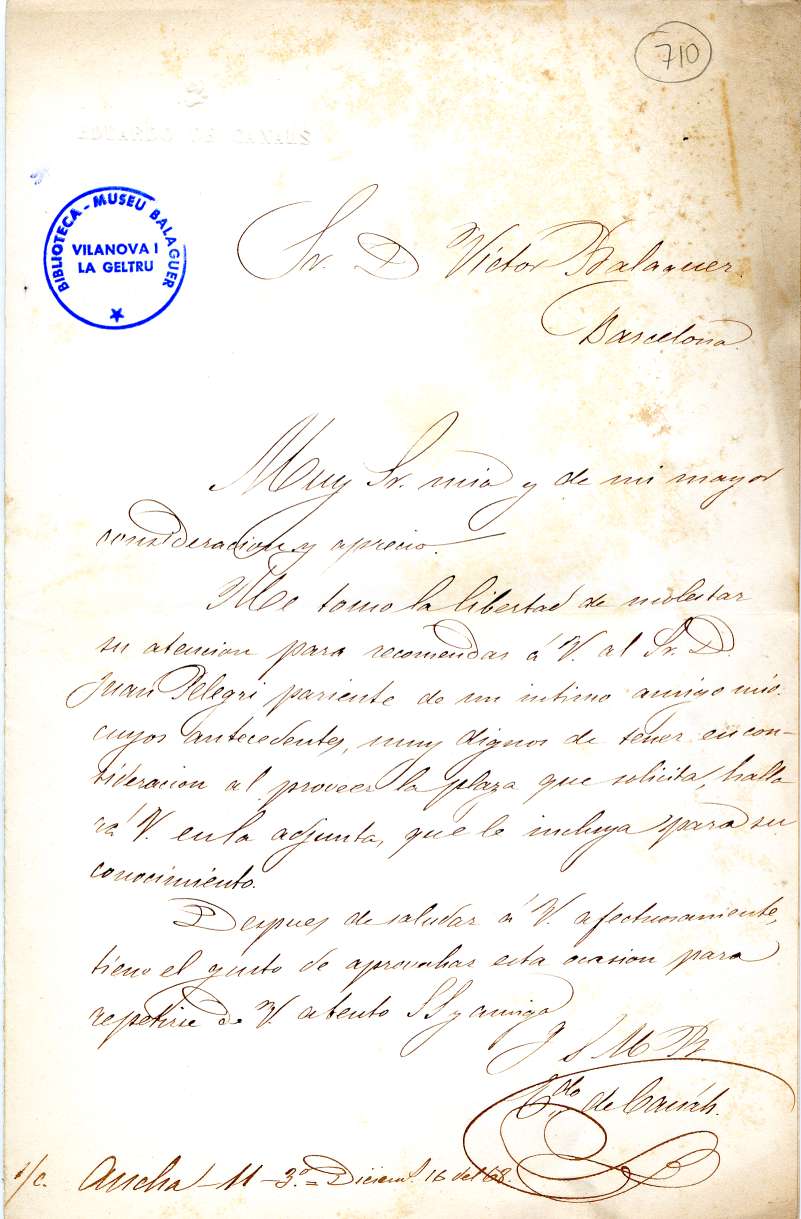 710
EDUARDO DE CANALS
BIBLIOTECA - MUSEU BALAGUER
VILANOVA I
LA GELTRU
Sr. D Victor Balaguer.
Barcelona.
Muy Sr. mio y de mi mayor
consideracion y aprecio.
Me tomo la libertad de molestar
su atencion para recomendar á V. al Sr. D.
Juan Pelegri pariente de un intimo amigo mio.
cuyos antecedentes, muy dignos de tener en con-
sideracion al proveer la plaza que solicita, halla
rá V. en la adjunta, que le incluyo para su
conocimiento.
Despues de saludar á V. afectuosamente,
tiene el gusto de aprovechar esta ocasion para
repetirse de V. atento SS y amigo
Q S M B.
Edo de Canals.
s/c. Ancha - 11 - 3º = Diciem. 16 del 68.